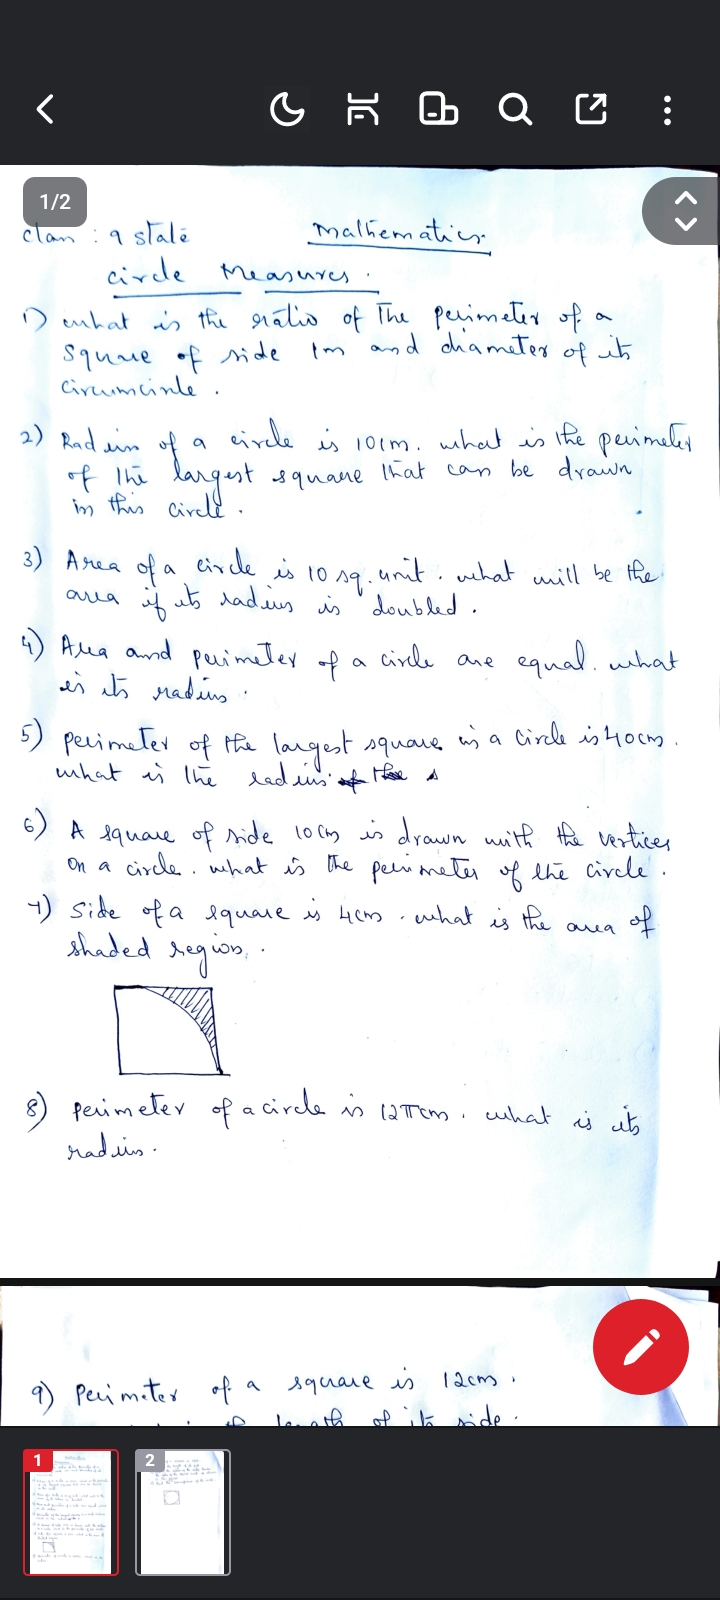 1/2
clan : 9 state
Mathematics
circle Measures.
1) what is the ratio of The perimeter of a
square of side 1m and diameter of its
circumcircle.
2) Radius of a circle is 10cm. what is the perimeter
of the largest square that can be drawn
in this circle.
3) Area of a circle is 10 sq.unit. what will be the
area if its radius is doubled.
4) Area and perimeter of a circle are equal. what
is its radius.
5) perimeter of the largest square in a circle is 40cm.
what is the radius.
6) A square of side 10cm is drawn with the vertices
on a circle. what is the perimeter of the circle.
7) Side of a square is 4cm. what is the area of
shaded region.
8) perimeter of a circle is 12πcm. what is its
radius.
9) Perimeter of a square is 12cm.
length of its side.
1
2